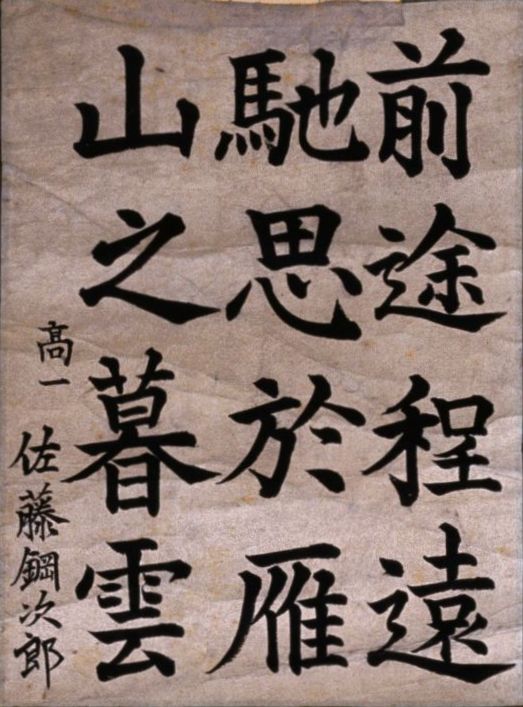 前途程遠
馳思於雁
山之暮雲
高一
佐藤鋼次郎